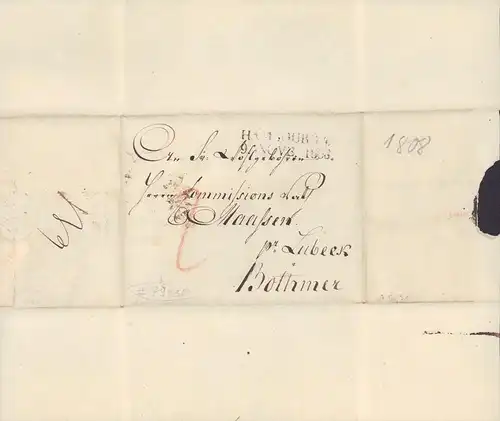 HAMBURG
9. NOVB. 1808.
An Sr. Wohlgebohren
Herrn Commissions Rath
Maassen
pr. Lübeck
Bothmer
1808